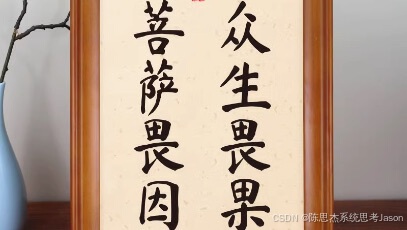 众生畏果
菩萨畏因
CSDN @陈思杰系统思考Jason